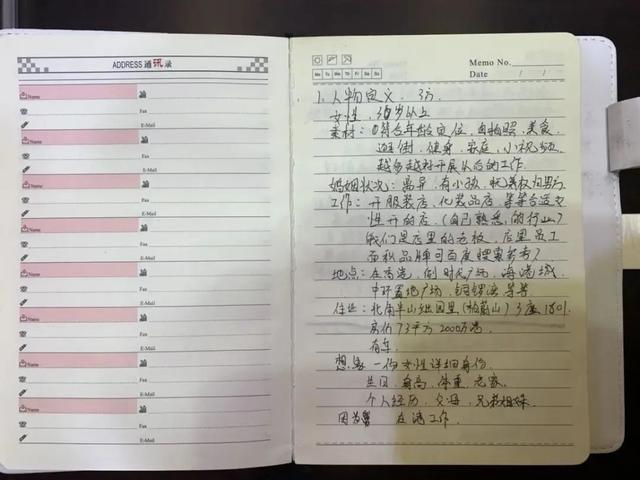 ADDRESS 通讯录
Name
Fax
E-Mail
Name
Fax
E-Mail
Name
Fax
E-Mail
Name
Fax
E-Mail
Name
Fax
E-Mail
Name
Fax
E-Mail
Name
Fax
E-Mail
Name
Fax
E-Mail
Memo No.
Mo Tu We Th Fr Sa Su
Date / /
1. 人物定义.
女性, 30岁以上
素材: ①符合年龄定位, 自拍照, 美食,
逛街, 健身, 家庭, 小视频
越多越好开展以后的工作.
婚姻状况: 离异, 有小孩, 抚养权归男方
工作: 开服装店, 化妆品店, 等等合适女
性开的店, (自己熟悉的行业)
我们是店里的老板, 店里员工
面积品牌可百度搜索参考)
地点: 在香港, 例 时代广场, 海港城,
中环置地广场, 铜锣湾 等等
住址: 北角半山 (柏蔚山) 3座1801.
房价 73平方 2000万港
有车.
想象 一份女性详细身份.
生日, 身高, 体重, 老家,
个人经历, 父母, 兄弟姐妹.
因为 在港工作.